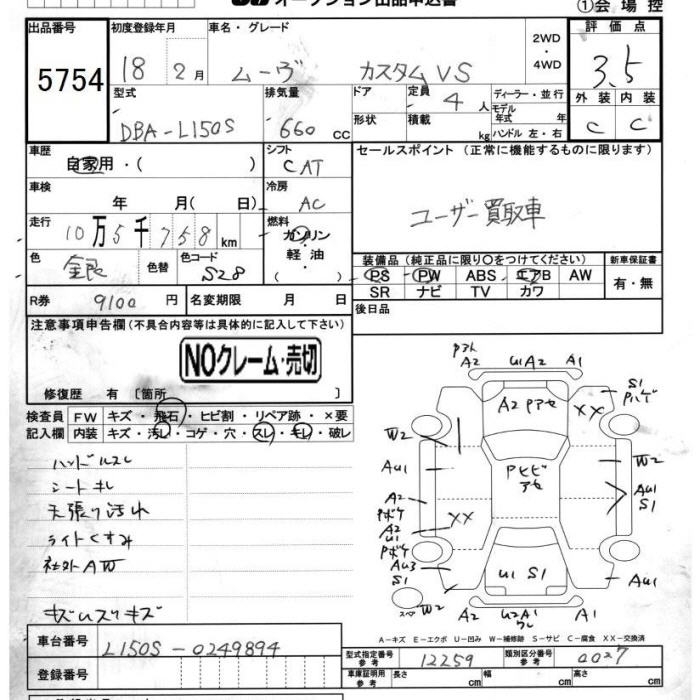 オークション出品申込書
①会場控
出品番号 初度登録年月 車名・グレード 2WD・4WD 評価点
5754 18 2月 ムーヴ カスタムVS 3.5
型式 排気量 ドア 定員 4人 ディーラー・並行 外装 内装
DBA-L150S 660cc 形状 積載 kg モデル年式 年 ハンドル 左・右 C C
車歴 自家用・( ) シフト CAT セールスポイント (正常に機能するものに限ります)
車検 年 月( 日) 冷房 AC
ユーザー買取車
走行 10万5千758km 燃料 ガソリン・軽油・
色 銀 色替 色コード S28
装備品 (純正品に限り○をつけてください) 新車保証書
PS PW ABS エアB AW 有・無
SR ナビ TV カワ
R券 9100円 名変期限 月 日 後日品
注意事項申告欄(不具合内容等は具体的に記入して下さい)
NOクレーム・売切
修復歴 有 [箇所 ]
検査員記入欄 FW キズ・飛石・ヒビ割・リペア跡・×要
内装 キズ・汚レ・コゲ・穴・スレ・キレ・破レ
ハンドルスレ
シートキレ
天張り汚れ
ライトくすみ
社外AW
キズムスリキズ
A2 U1A2 A1
A2 Pアセ
XX
S1
Pハゲ
W2
AU1
PヒビアセW2
AU1
S1
A2
Pボケ
A2
U1
XX
Pボケ
AU3
S1
U1 S1
AU1
スペア
W2
A2 U2A1 A1
ワレ
A-キズ E-エクボ U-凹み W-補修跡 S-サビ C-腐食 XX-交換済
車台番号 L150S-0249894
型式指定番号 参考 12259 類別区分番号 参考 0027
登録番号 車庫証明用 参考 長さ cm 幅 cm 高さ cm